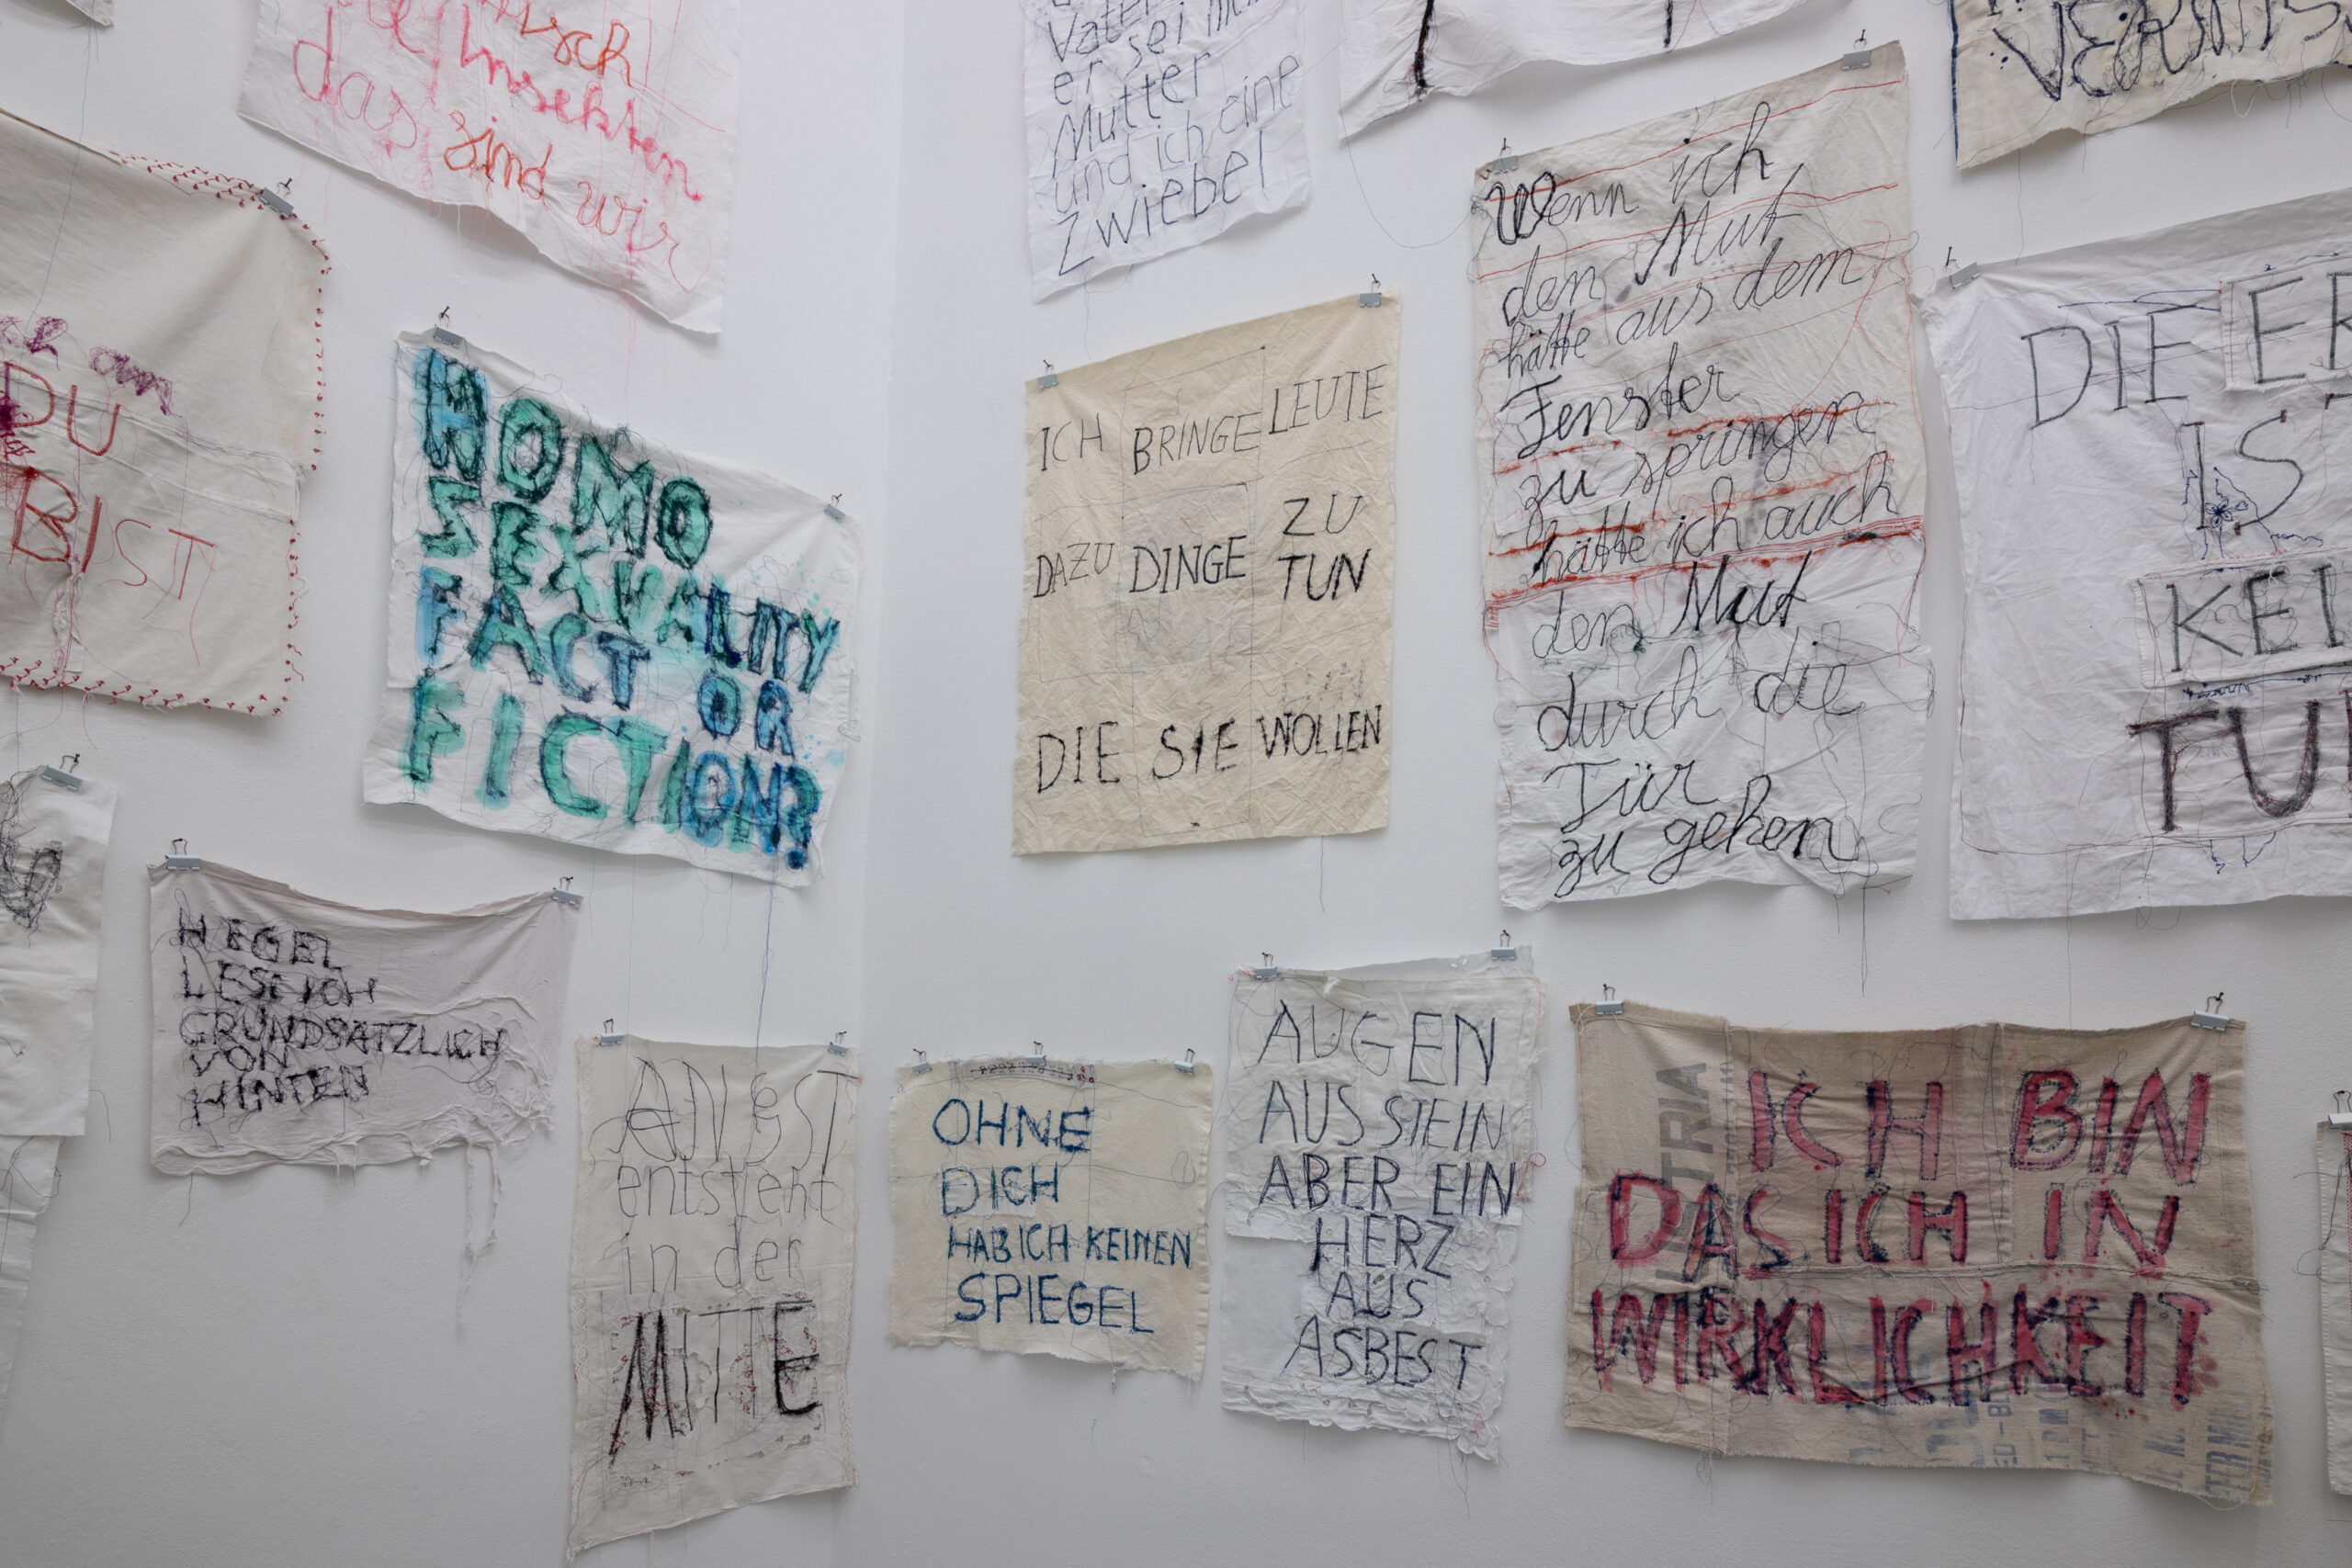 das sind wir
Insekten
er sei
Mutter
und ich eine
Zwiebel
Wenn ich
den Mut
hätte aus dem
Fenster
zu springen
hätte ich auch
den Mut
durch die
Tür
zu gehen
DU
BIST
HOMO
SEXUALITY
FACT OR
FICTION?
ICH BRINGE LEUTE
DAZU DINGE ZU
TUN
DIE SIE WOLLEN
DIE
HEGEL
LESE ICH
GRUNDSÄTZLICH
VON
HINTEN
ANGST
entsteht
in der
MITTE
OHNE
DICH
HAB ICH KEINEN
SPIEGEL
AUGEN
AUS STEIN
ABER EIN
HERZ
AUS
ASBEST
ICH BIN
DAS ICH IN
WIRKLICHKEIT